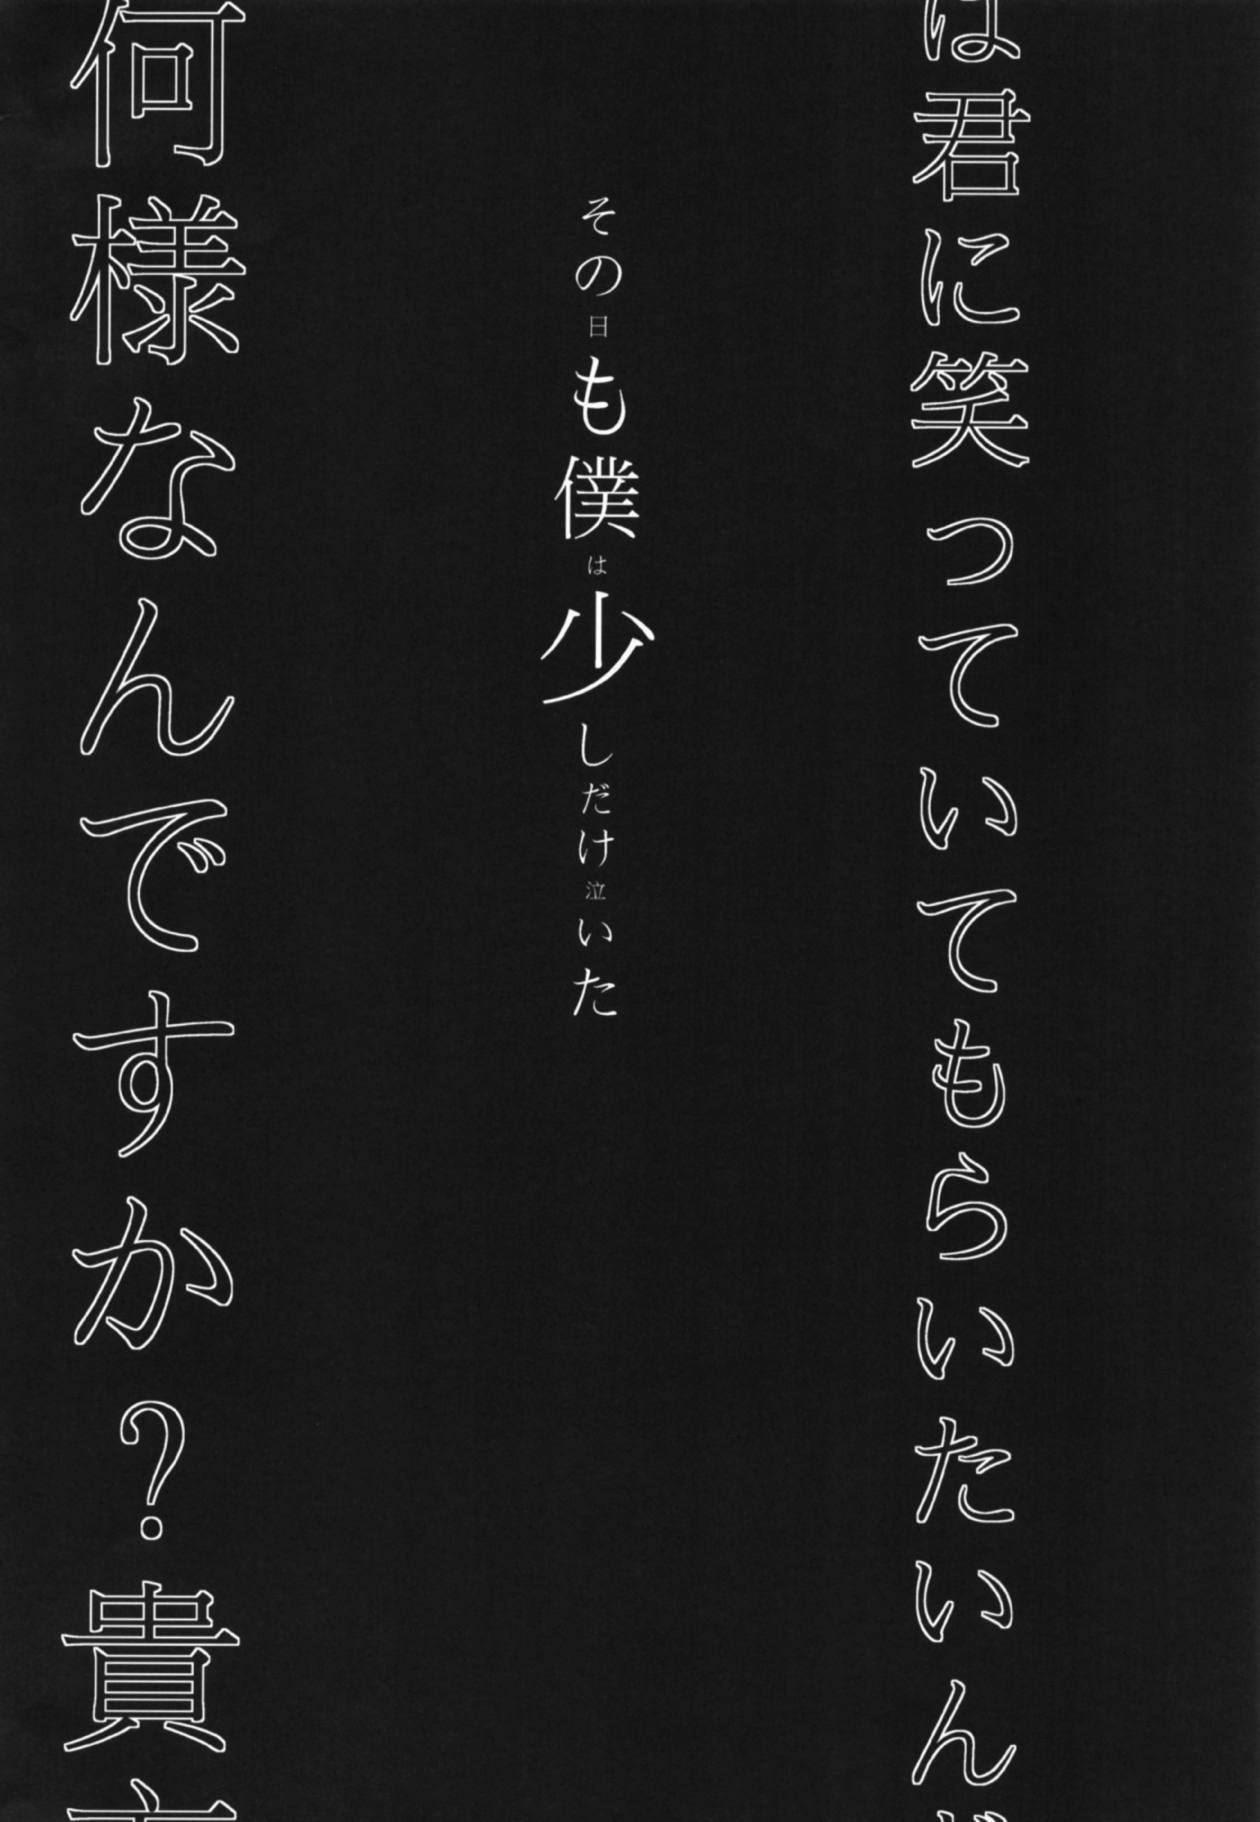 は君に笑っていてもらいたいんだ
その日も僕は少しだけ泣いた
何様なんですか？貴方